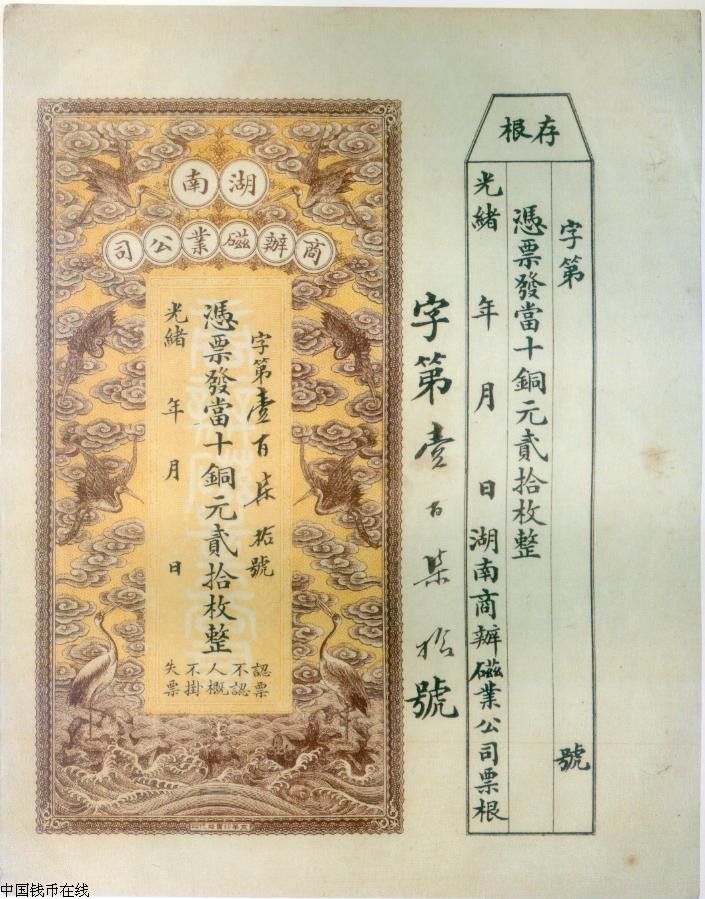 存根
字第 號
憑票發當十銅元貳拾枚整
光緒 年 月 日湖南商辦磁業公司票根
字第壹百柒拾號
湖南
商辦磁業公司
字第壹百柒拾號
憑票發當十銅元貳拾枚整
光緒 年 月 日
認票不認人概不掛失票
中国钱币在线